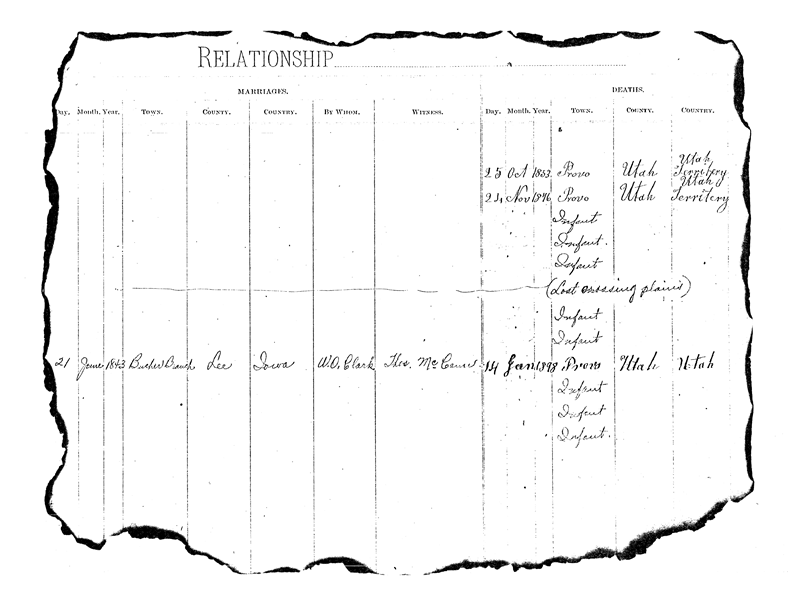 RELATIONSHIP
MARRIAGES. DEATHS.
Day. Month. Year. TOWN. COUNTY. COUNTRY. BY WHOM. WITNESS. Day. Month. Year. TOWN. COUNTY. COUNTRY.
25 Oct 1853 Provo Utah Utah Territery
24 Nov 1876 Provo Utah Utah Territery
Infant
Infant.
Infant
(Lost crossing plains)
Infant
Infant
21 June 1843 Lee Iowa W.O. Clark Thos. 14 Jan. 1898 Provo Utah Utah
Infant
Infant
Infant.